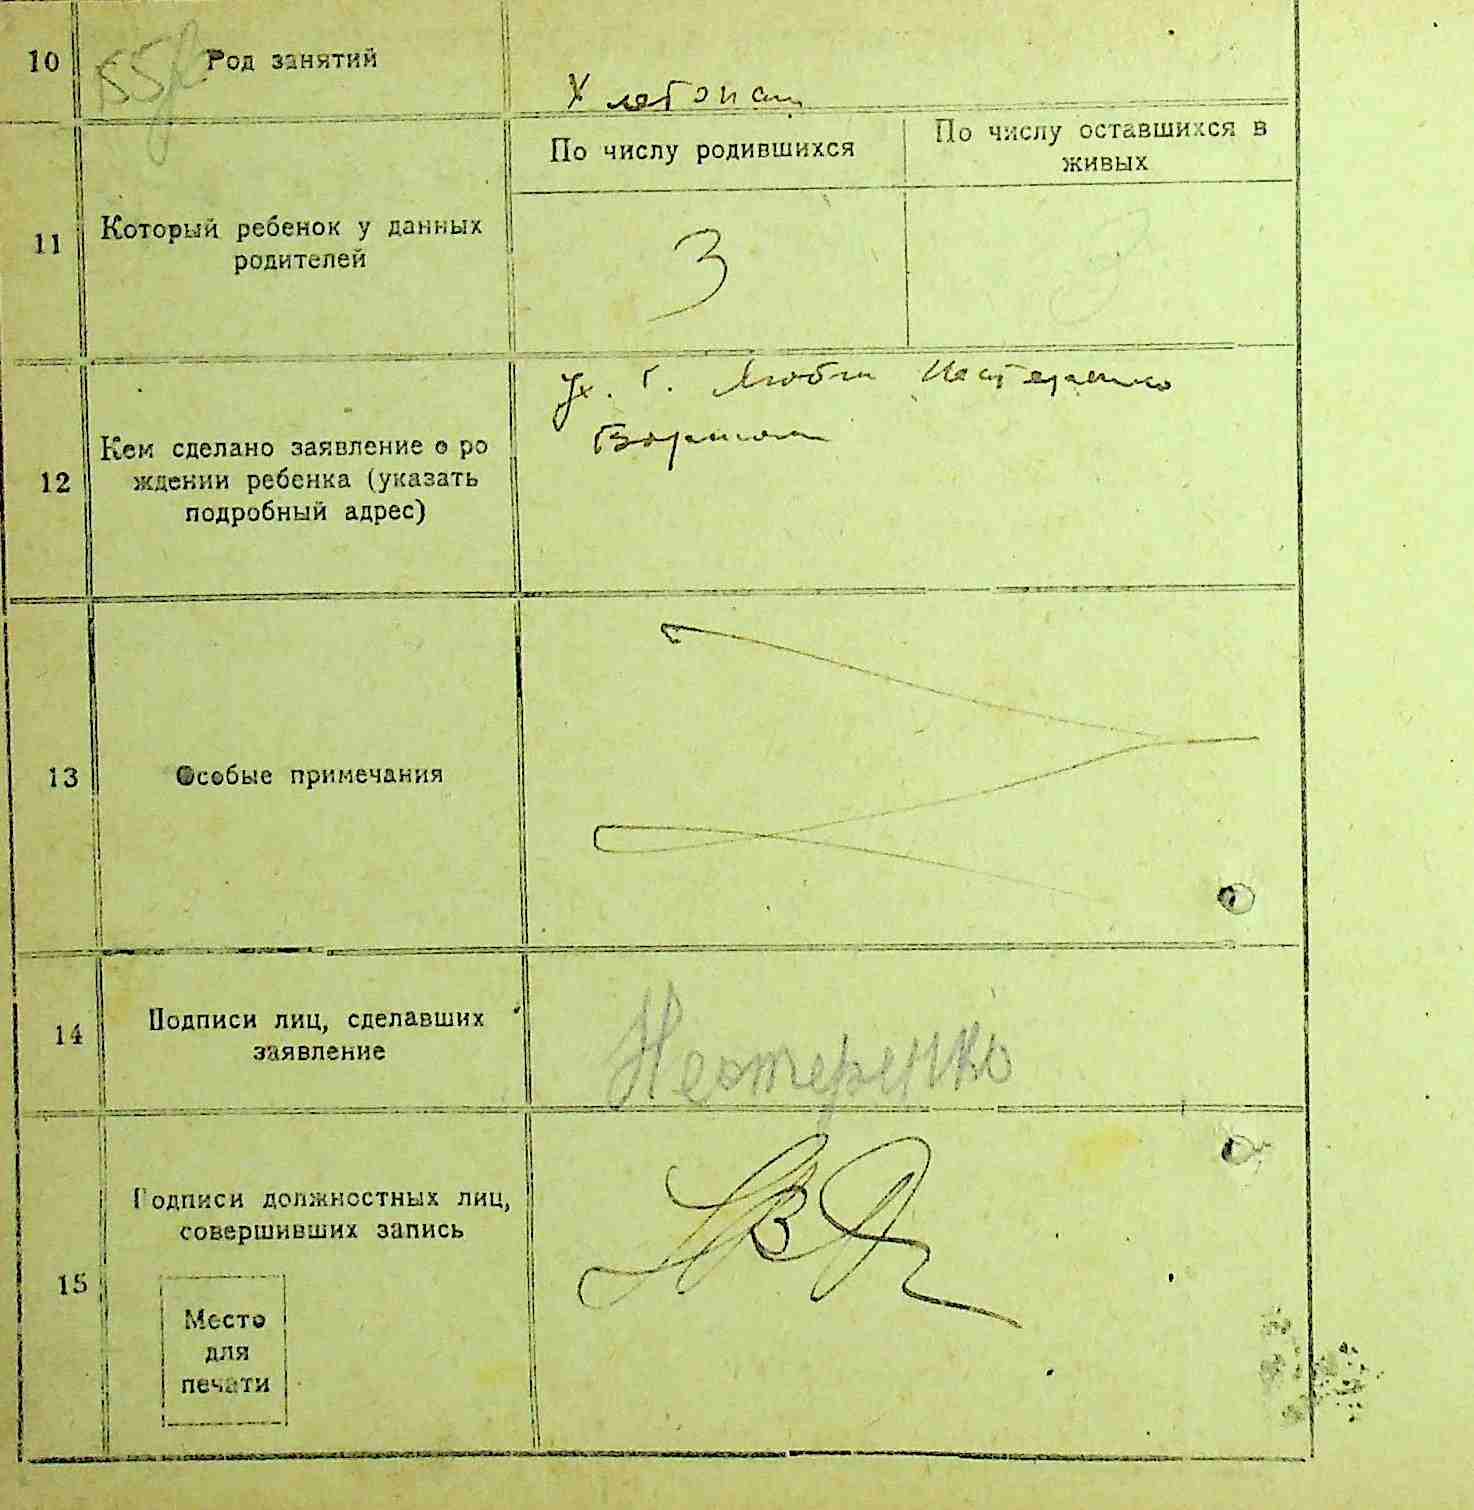 10 Род занятий
Хлебопаш
По числу родившихся
По числу оставшихся в
живых
11 Который ребенок у данных
родителей
3
3
Нестеренко
12 Кем сделано заявление о ро
ждении ребенка (указать
подробный адрес)
13 Особые примечания
14 Подписи лиц, сделавших
заявление
Нестеренко
15 Подписи должностных лиц,
совершивших запись
Место
для
печати